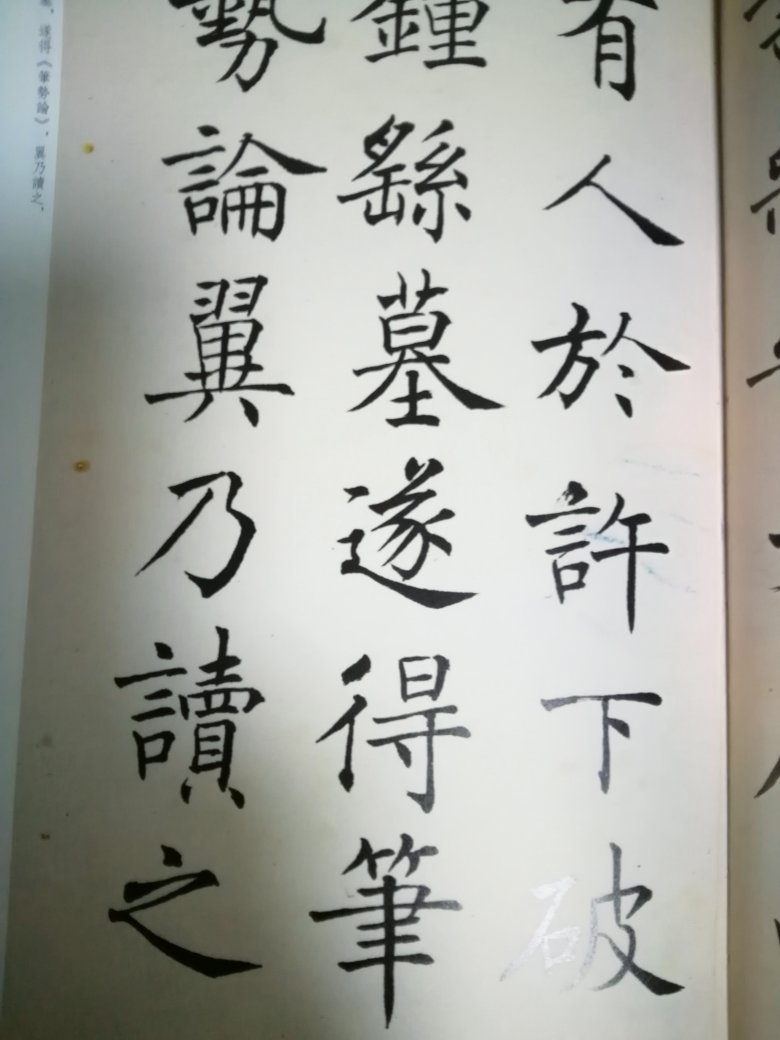 有人於許下破
鍾繇墓遂得筆
勢論翼乃讀之
遂得《筆勢論》，翼乃讀之，